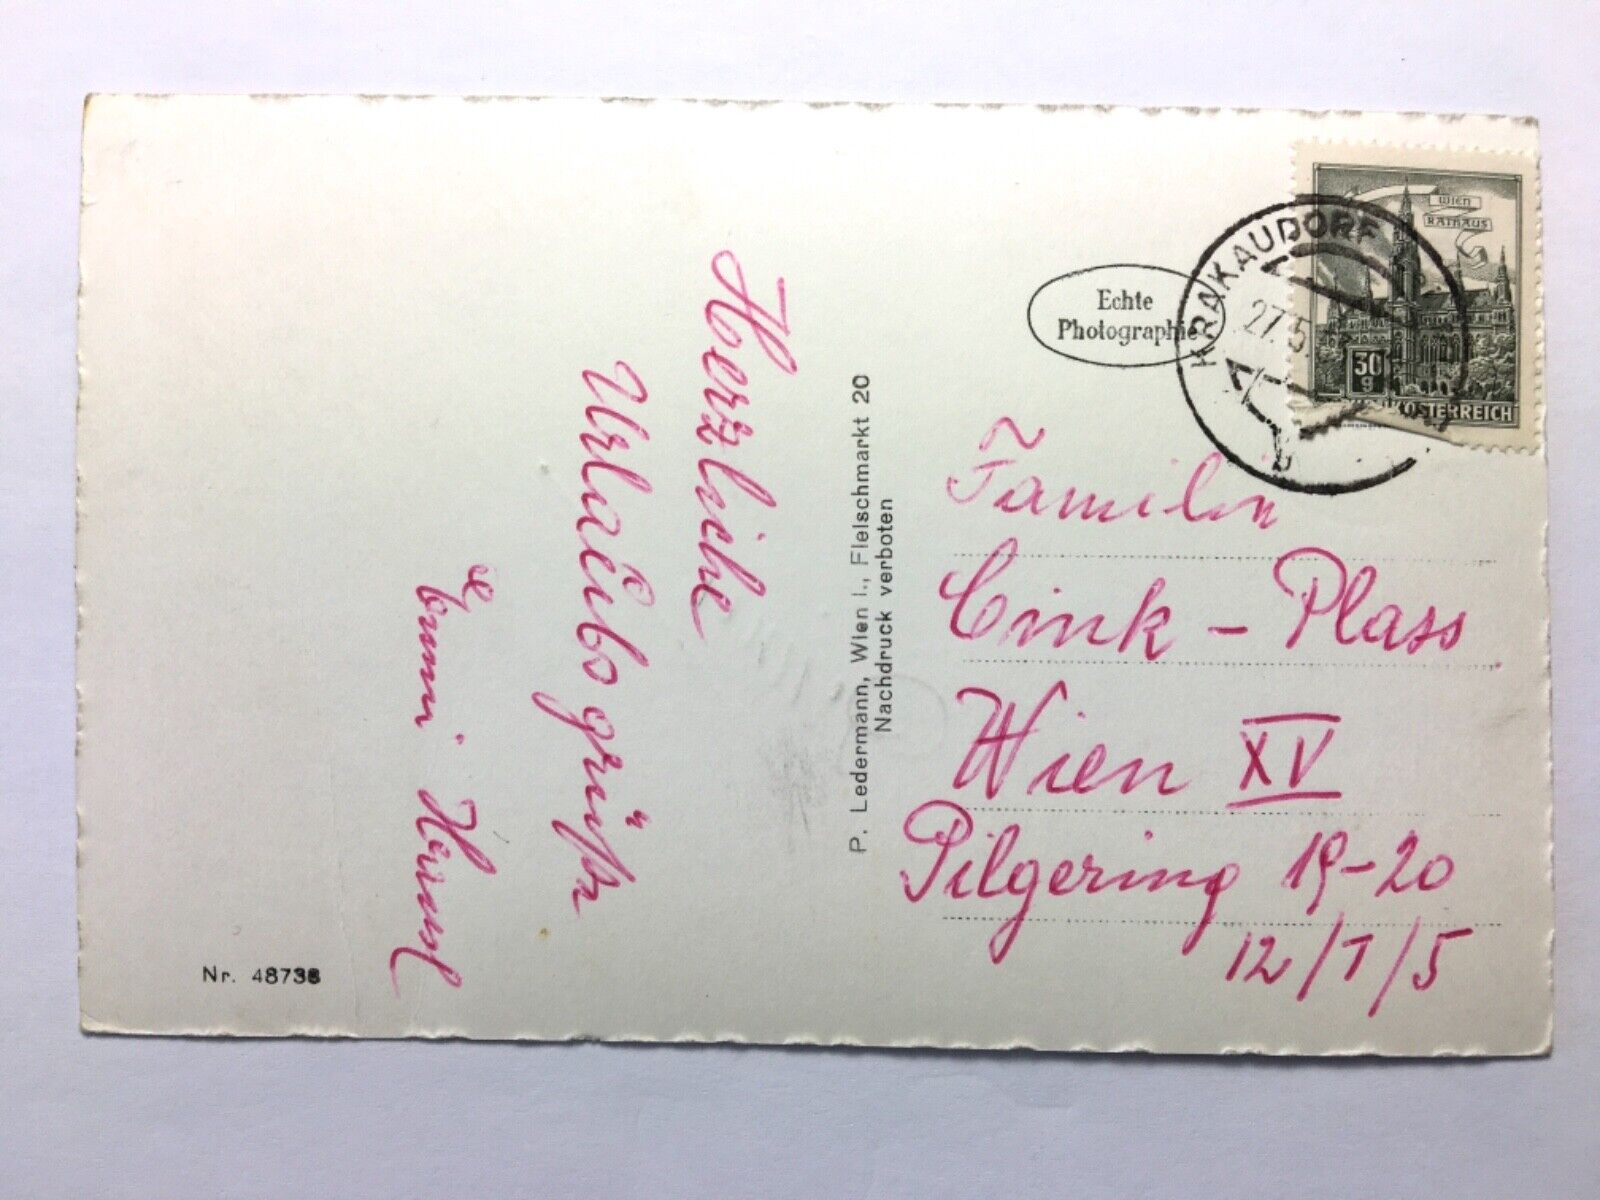 Herzliche
Urlaubsgrüße
Nr. 48738
P. Ledermann, Wien I., Fleischmarkt 20
Nachdruck verboten
Echte
Photographie
KRAKAUDORF
27.5
b
WIEN
RATHAUS
30
g
REPUBLIK ÖSTERREICH
Familie
Cink - Plass
Wien XV
Pilgering 19-20
12/1/5